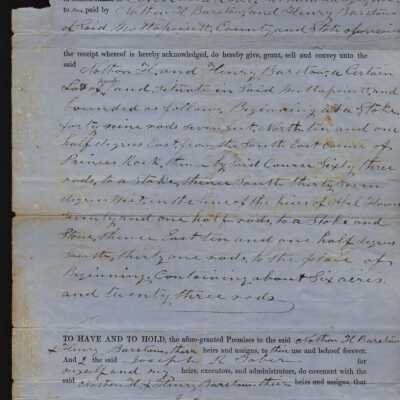 to me paid by Nathan H. Barstow and Henry Barstow
of Said Mattapoisett, County and State aforesaid
the receipt whereof is hereby acknowledged, do hereby give, grant, sell and convey unto the
said Nathan H. and Henry Barstow a Certain
Lot of Land, Situate in Said Mattapoisett, and
bounded as follows, Beginning at a Stake
forty nine rods North ten and one
half degrees East, from the South East Corner of
Rock, thence by Said Course Sixty three
rods, to a Stake, thence South thirty Seven
degrees West, in the line of the heirs of
Seventy and one half rods, to a Stake and
Stone, thence East ten and one half degrees
South, thirty one rods, to the place of
Beginning, Containing about Six acres
and twenty three rods
TO HAVE AND TO HOLD, the afore-granted Premises to the said Nathan H Barstow
& Henry Barstow, their heirs and assigns, to their use and behoof forever.
And I the said Joseph R. for
myself and my heirs, executors, and administrators, do covenant with the
said Nathan H & Henry Barstow their heirs and assigns, that